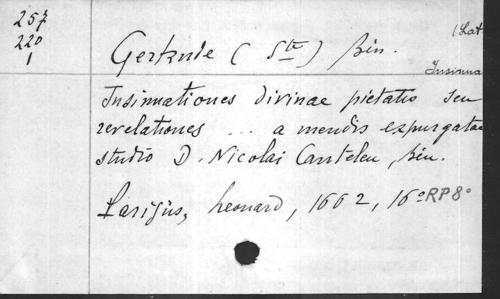 257
220
1
Gertrude (Ste) Bén.
(Lat
Insinua
Insinuationes divinae pietatis seu
revelationes ... a mendis expurgatae
studio D. Nicolai Canteleu, Bén.
Parisiis, Leonard, 1662, 16° RP8°